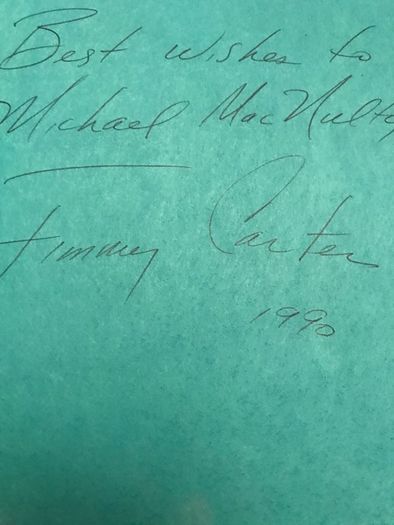 Best wishes to
Michael MacNulty
Jimmy Carter
1990